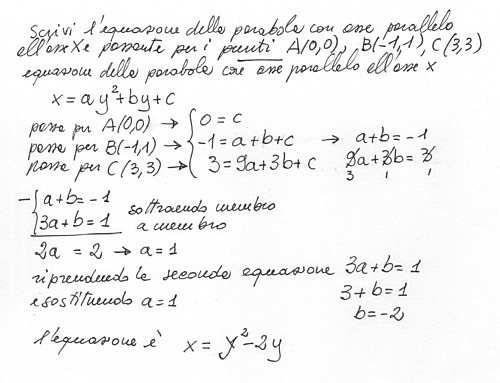 Scrivi l'equazione della parabola con asse parallelo
all'asse x e passante per i punti A(0,0), B(-1,1), C(3,3)
equazione della parabola con asse parallelo all'asse x
x = ay²+by+c
passa per A(0,0) → { 0 = c
passa per B(-1,1) → { -1 = a+b+c → a+b = -1
passa per C(3,3) → { 3 = 9a+3b+c 9a+3b = 3
3 1 1
- { a+b = -1 sottraendo membro
{ 3a+b = 1 a membro
2a = 2 → a = 1
riprendendo la seconda equazione 3a+b = 1
e sostituendo a = 1 3+b = 1
b = -2
l'equazione è x = y²-2y